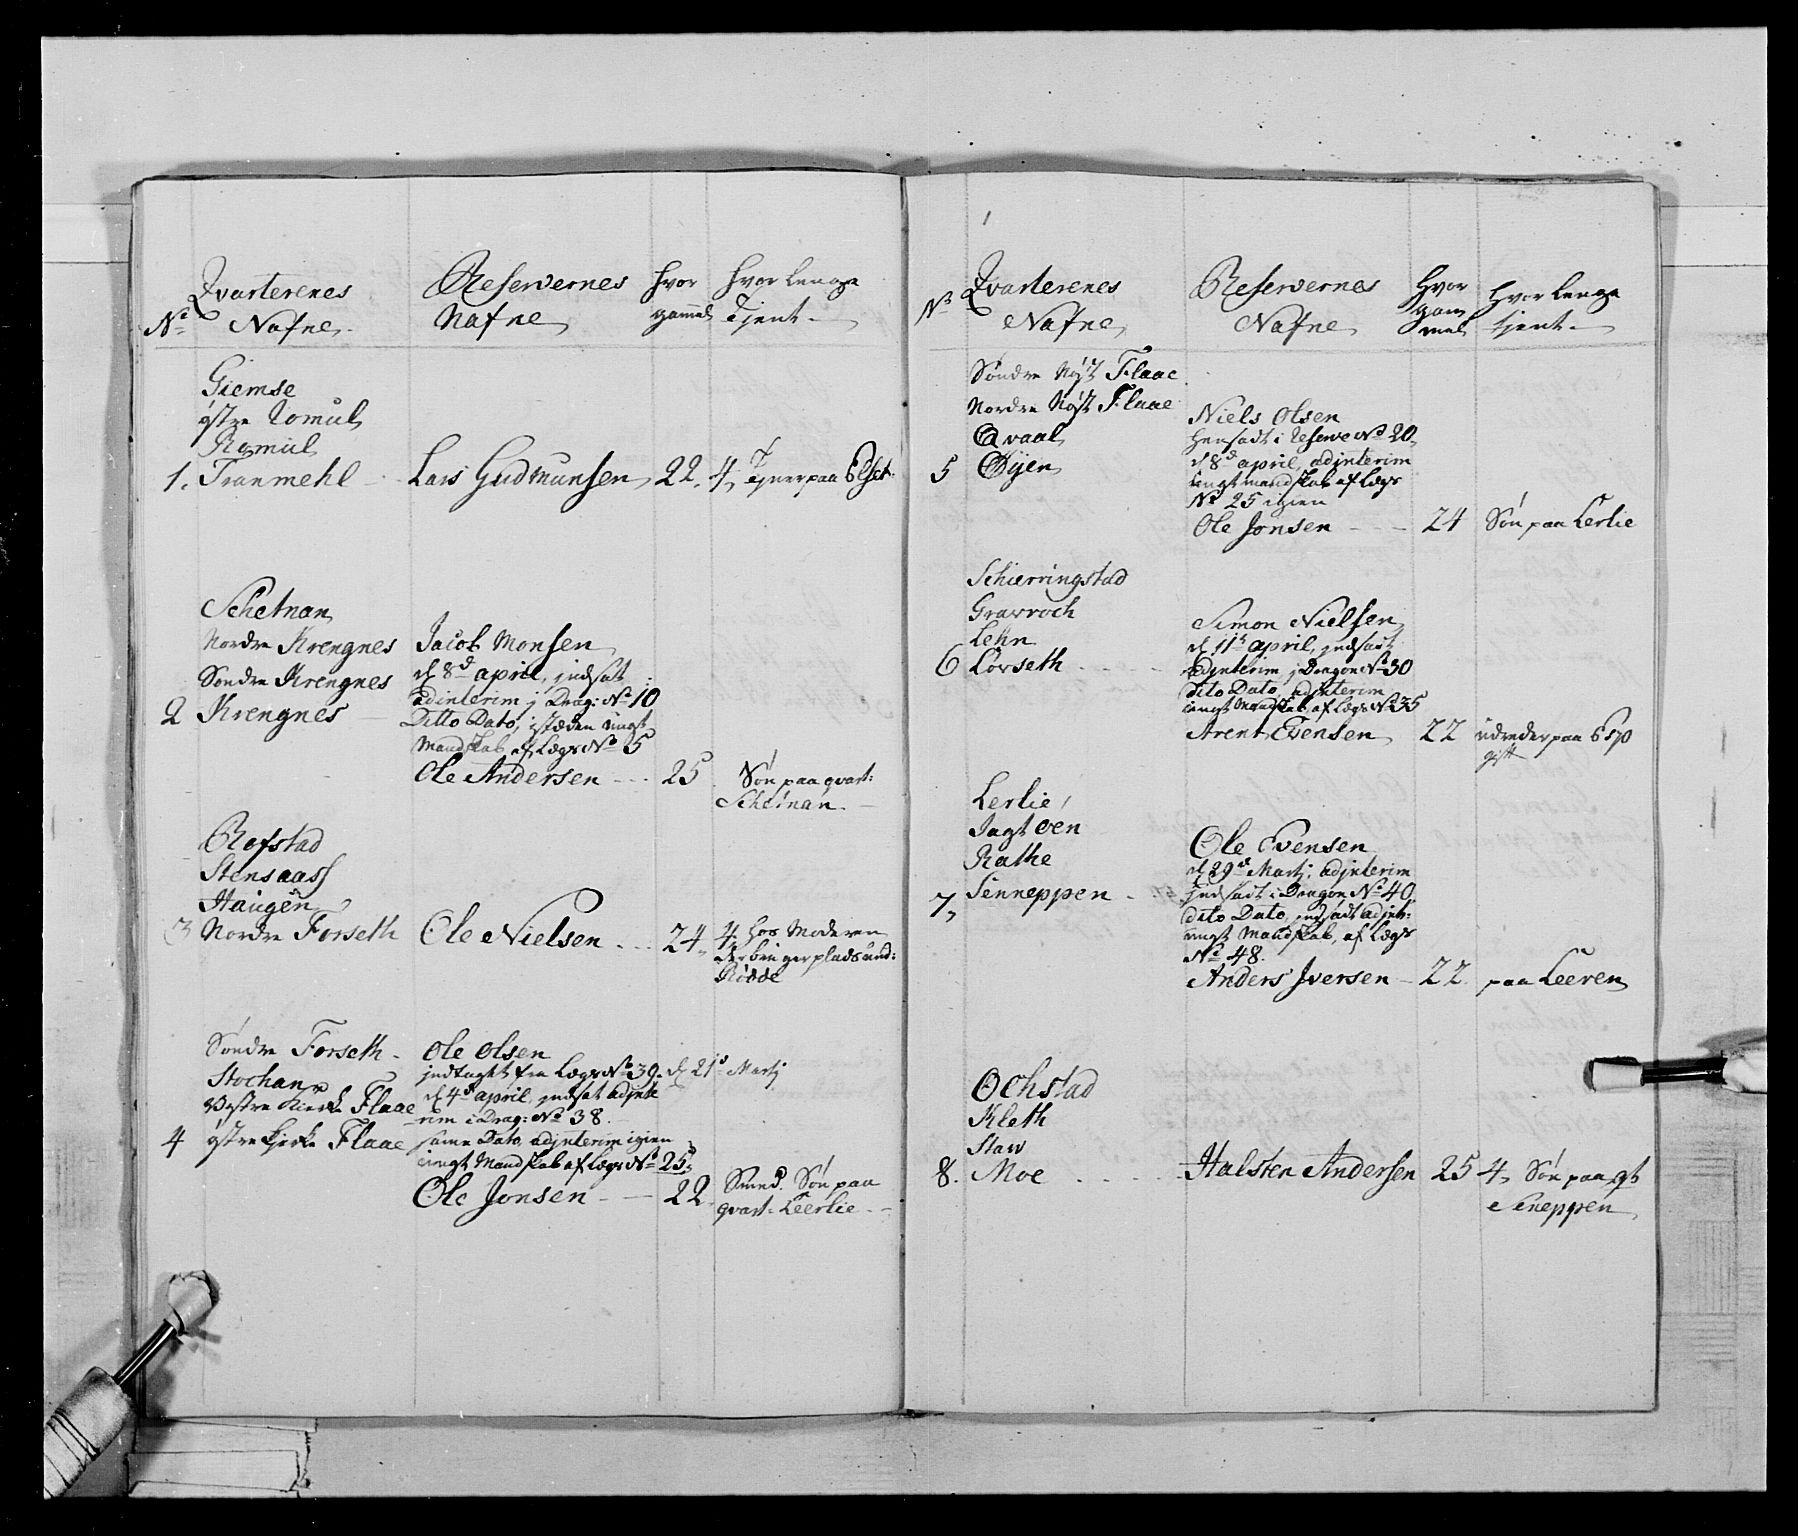 No
Qvarterenes
Nafne
Reservernes
Nafne
hvor
gammel
hvor lenge
Tjent
Giemse
østre Romul
Romul
1. Tranmehl Lars Gudmunsen 22. 4 Tjener paa Elset
Schetnan
Nordre Krengnes
Søndre Krengnes
2 Krengnes
Jacob Monsen
d 8d april, indsat
adinterim j Drag: No 10
Ditto Dato, istæden ungt
Mandskab af Lægs No 5
Ole Andersen 25 Søn paa qvart:
Schetnan
Rofstad
Stensaas
Haugen
3 Nordre Forseth Ole Nielsen 24 4 hos Moderen
der bruger plads und:
Rødde
Søndre Forseth
Stochan
Vestre Kirke Flaae
4 østre Kirke Flaae
Ole Olsen
indtaget fra Lægs No 39. d 21s Martj
d 4d april, indsat adjnte
rim i Drag: No 38
same Dato, adjnterim igien
ungt Mandskab af Lægs No 25
Ole Jonsen 22 Smed. Søn paa
qvart: Leerlie
No
Qvarterenes
Nafne
Reservernes
Nafne
Hvor
gam
mel
Hvor lenge
tjent
Søndre Nÿt Flaae
Nordre Nÿt Flaae
Qvaal
5 Øyen
Niels Olsen
Hensadt i Reserve No 20
d 8d april, adjnterim
ungt mandskab af Lægs
No 25 igien
Ole Jonsen 24 Søn paa Lerlie
Schierringstad
Gravroch
Lehn
6 Løvseth
Simon Nielsen
d 11s april, jndsadt
adjnterim j Dragon No 30
dito Dato, adjnterim
ungt Mandskab af Lægs No 35
Arent Evensen 22 paa
gift
Lerlie
Jagtøen
Rathe
7, Senneppen
Ole Evensen
d 29d Martj, adjnterim
jndsadt i Dragon No 40
dito Dato, indsadt adjnt:
ungt Mandskab, af Lægs
No 48.
Anders Iversen 22. paa Leeren
Ochstad
Kleth
Stav
8. Moe Halsten Andersen 25 4, Søn paa qt
Seneppen